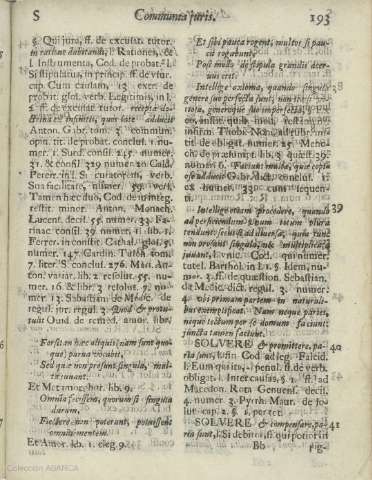 S Communia juris. 193
§. Qui jura, ff. de excusat. tutor.
in ratione dubitandi, l. Rationes, &
l. Instrumenta, Cod. de probat. l.
Si stipulatus, in princip. ff. de usur.
cap. Cum causam, 13. exer. de
probat. glos. verb. Legitimis, in l.
2. ff. de excusat. tutor.
& infinitis, quos late adducit
Anton. Gabr. tom. 3. commun.
opin. tit. de probat. conclus. 1. nu-
mer. 1. Surd. consil. 245. numer.
21. & consil. 319 numer. 20. Cald.
Pereir. in l. Si curatorem, verb.
Sua facilitate, numer. 59. verb.
Tam in hæc duo, Cod. de in integ.
restit. minor. Anton. Monach.
Lucent. decis. 55. numer. 32. Fa-
rinac. consil. 39. numer. 11. lib. 1.
Ferrer. in constit. Cathal. glos. 5.
numer. 147. Gardin. Tusch. tom.
7. liter. S. conclus. 276. Mar. An-
ton. variar. lib. 2. resolut. 55. nu-
mer. 16. & lib. 3. resolut. 7. nu-
mer. 13. Sabastian. de Medic. de
regul. jur. regul. 3. Quod & protu-
lit Ovid. de remed. amor. lib.
Forsitan hæc aliquis (nam sunt quo-
que) parva vocabit,
Sed quæ non prosunt singula, mul-
ta juvant.
Et Metamor. lib. 9.
Omnia fecissem, quorum si singula
duram,
Flectere non poterant, potuissent
omnia mentem.
Et Amor. lib. 1. eleg. 9.
Et si pauca rogent, multos si pau-
ci rogabunt,
Post modo de stipula grandis acer-
vus erit.
Intellige axioma, quando singula 38
genere suo perfecta sunt, non
infirm. Thobi. Non. ad rubr.
tit. de obligat. numer. 25. Meno-
ch. de præsumpt. lib. 3. quæst. 39.
numer. 6. Gabr. dict. conclus. 1.
ex numer. 33. cum sequen-
ti.
Intellige etiam procedere, quando 39
ad perficiendum unum idem plura
tendunt: secus si ad diversa, quia tunc
non prosunt singula, & multiplicata
juvant, l. unic. Cod. qui numer.
tutel. Barthol. in l. 1. §. Idem, nu-
mer. 3. ff. de quæstion. Sebastian.
de Medic. dict. regul. 3. numer.
4. ubi primam partem in naturali-
bus exemplificat. Nam neque paries,
neque tectum per se domum faciunt:
juncta tamen faciunt.
SOLVERE & promittere, pa- 40
ria sunt, l. fin. Cod. ad leg. Falcid.
l. Eum qui ita, §. penul. ff. de verb.
obligat. l. Inter causas, §. 1. ff. ad
Macedon. Rota Genuens. decis.
4. numer. 3. Pyrrh. Maur. de so-
lut. cap. 2. §. 1. perter.
SOLVERE & compensare, pa- 41
ria sunt, l. Si debitor, ff. qui potior in
Bb pig-
Colección ABANCA